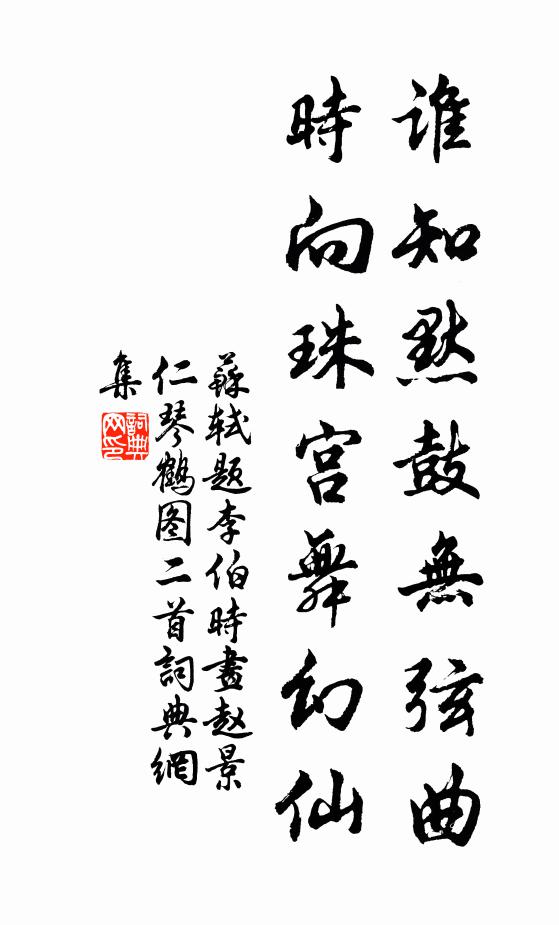 誰知默鼓無弦曲
時向珠宮舞幻仙
蘇軾题李伯時畫赵景
仁琴鶴图二首詞典網
集
詞典
网印